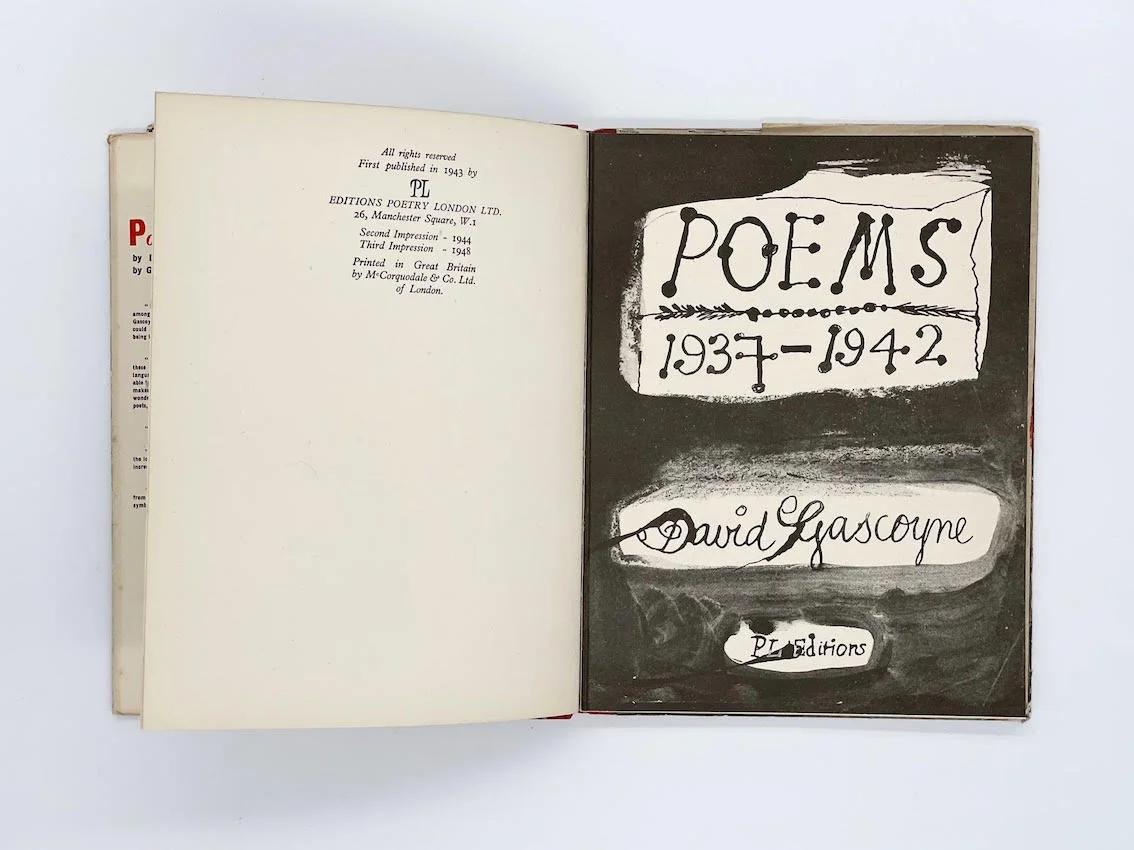 by
by G
among
Gascoy
could
being
these
langua
able
makes
wonde
poets,
the
incre
from
symb
All rights reserved
First published in 1943 by
PL
EDITIONS POETRY LONDON LTD.
26, Manchester Square, W.1
Second Impression - 1944
Third Impression - 1948
Printed in Great Britain
by McCorquodale & Co. Ltd.
of London.
POEMS
1937-1942
David Gascoyne
PL Editions